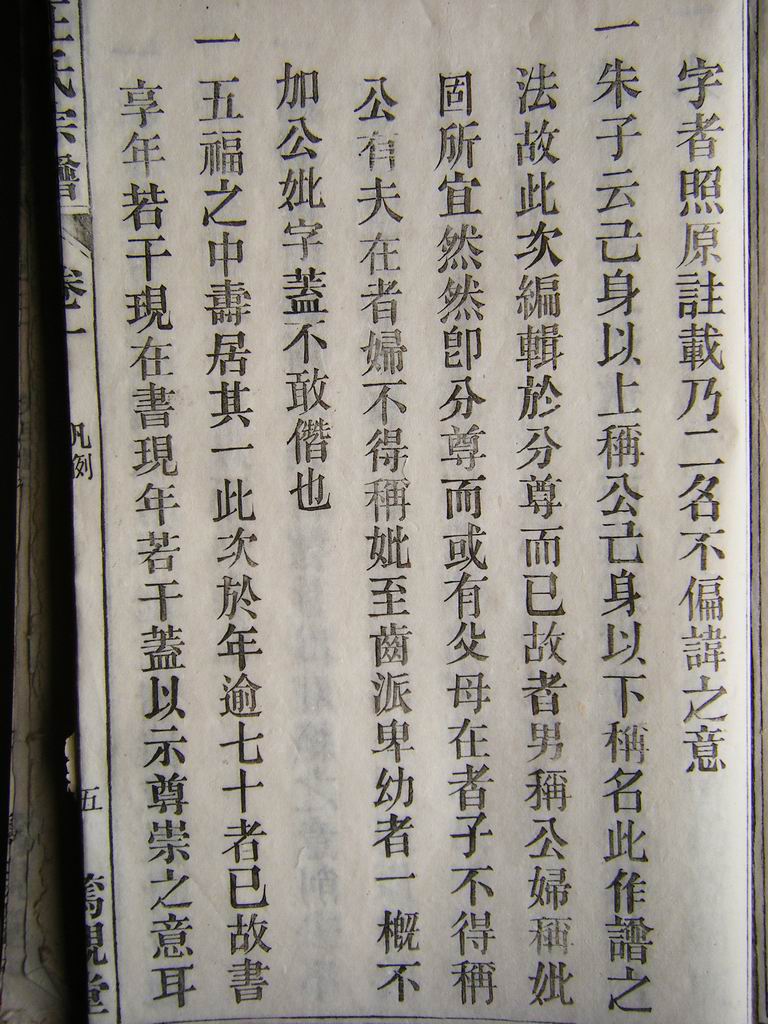 字者照原註載乃二名不偏諱之意
一朱子云己身以上稱公己身以下稱名此作譜之
法故此次編輯於分尊而已故者男稱公婦稱妣
固所宜然然卽分尊而或有父母在者子不得稱
公有夫在者婦不得稱妣至齒派卑幼者一槪不
加公妣字蓋不敢僭也
一五福之中壽居其一此次於年逾七十者已故書
享年若干現在書現年若干蓋以示尊崇之意耳
氏宗譜 卷一 凡例 五 篤親堂